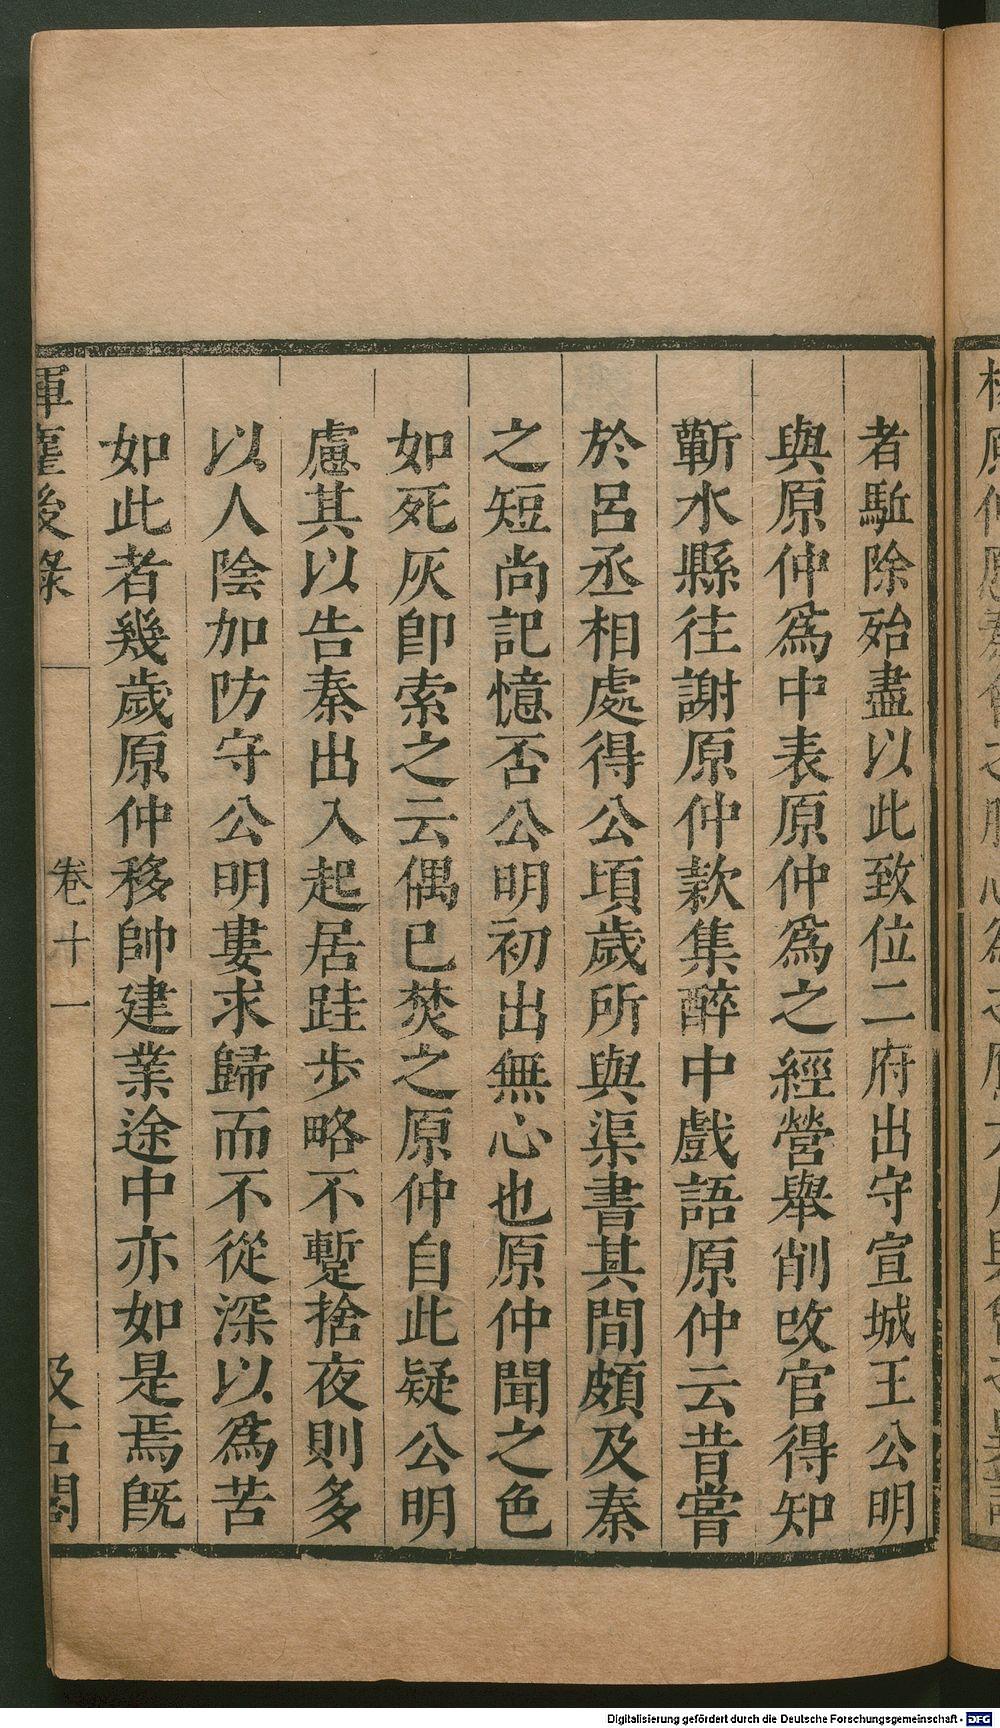 者駈除殆盡以此致位二府出守宣城王公明
與原仲爲中表原仲爲之經營舉削改官得知
蘄水縣往謝原仲款集醉中戲語原仲云昔嘗
於呂丞相處得公頃歲所與渠書其間頗及秦
之短尚記憶否公明初出無心也原仲聞之色
如死灰卽索之云偶已焚之原仲自此疑公明
慮其以告秦出入起居跬步略不蹔捨夜則多
以人陰加防守公明婁求歸而不從深以爲苦
如此者幾歲原仲移帥建業途中亦如是焉旣
揮麈後錄 卷十一 汲古閣
Digitalisierung gefördert durch die Deutsche Forschungsgemeinschaft - DFG